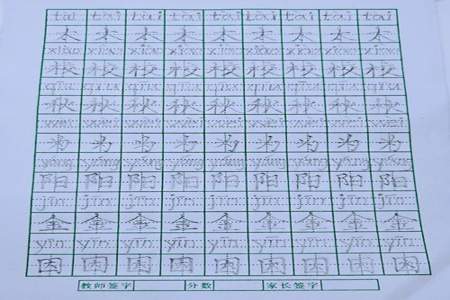 tài tài tài tài tài tài tài tài
太 太 太 太 太 太 太 太
xiào xiào xiào xiào xiào xiào xiào xiào
校 校 校 校 校 校 校 校
qiū qiū qiū qiū qiū qiū qiū qiū
秋 秋 秋 秋 秋 秋 秋 秋
为 为 为 为 为 为 为 为
yáng yáng yáng yáng yáng yáng yáng yáng
阳 阳 阳 阳 阳 阳 阳 阳
jīn jīn jīn jīn jīn jīn jīn jīn
金 金 金 金 金 金 金 金
yīn yīn yīn yīn yīn yīn yīn yīn
因 因 因 因 因 因 因 因
教师签字 分数 家长签字